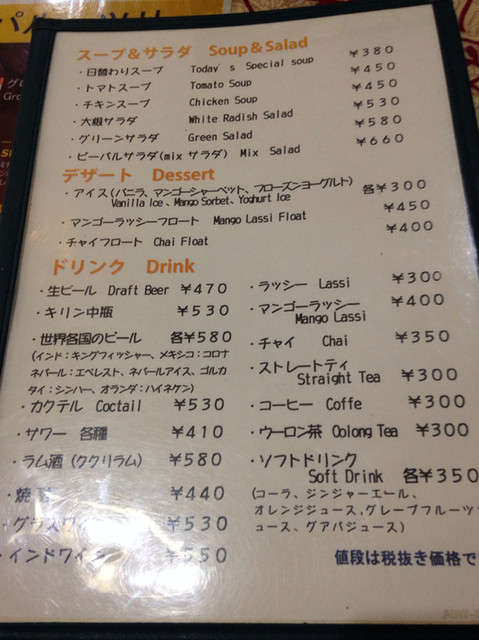 スープ&サラダ Soup&Salad
・日替わりスープ Today's Special soup ¥380
・トマトスープ Tomato Soup ¥450
・チキンスープ Chicken Soup ¥450
・大根サラダ White Radish Salad ¥530
・グリーンサラダ Green Salad ¥580
・ビーパルサラダ(mixサラダ) Mix Salad ¥660
デザート Dessert
・アイス(バニラ、マンゴーシャーベット、フローズンヨーグルト) 各¥300
Vanilla Ice、Mango Sorbet、Yoghurt Ice
・マンゴーラッシーフロート Mango Lassi Float ¥450
・チャイフロート Chai Float ¥400
ドリンク Drink
・生ビール Draft Beer ¥470
・キリン中瓶 ¥530
・世界各国のビール 各¥580
(インド:キングフィッシャー、メキシコ:コロナ
ネパール:エベレスト、ネパールアイス、ゴルカ
タイ:シンハー、オランダ:ハイネケン)
・カクテル Coctail ¥530
・サワー 各種 ¥410
・ラム酒(ククリラム) ¥580
・焼酎 ¥440
・グラスワイン ¥530
・インドワイン ¥550
・ラッシー Lassi ¥300
・マンゴーラッシー ¥400
Mango Lassi
・チャイ Chai ¥350
・ストレートティ
Straight Tea ¥300
・コーヒー Coffe ¥300
・ウーロン茶 Oolong Tea ¥300
・ソフトドリンク
Soft Drink 各¥350
(コーラ、ジンジャーエール、
オレンジジュース,グレープフルーツ
ュース、グアバジュース)
値段は税抜き価格で